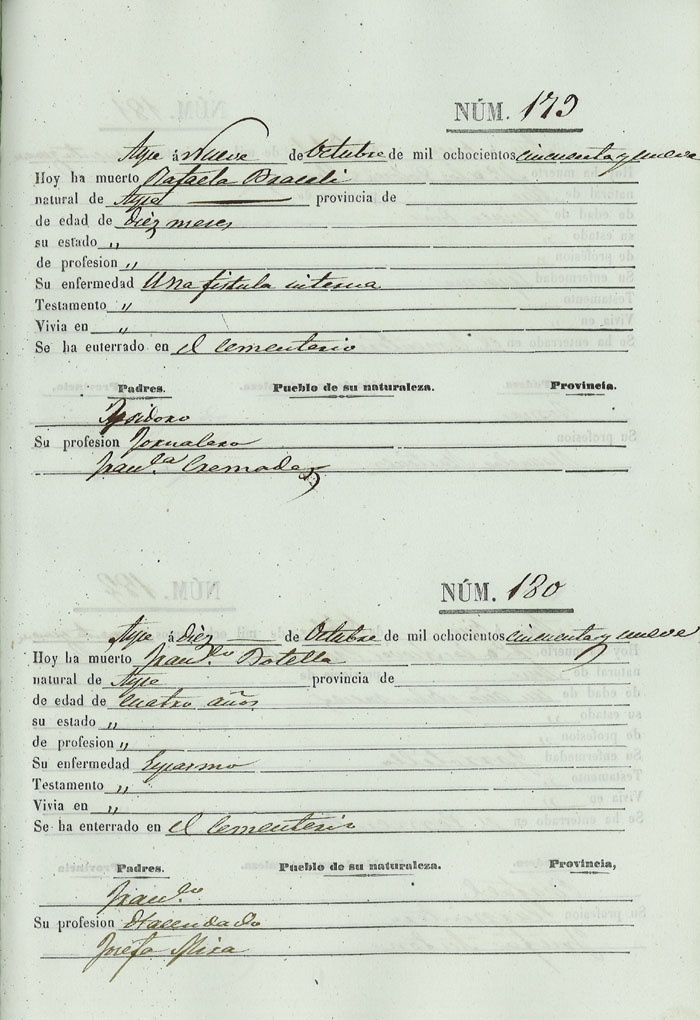 NÚM. 179
Aspe á Nueve de Octubre de mil ochocientos cincuenta y nueve
Hoy ha muerto Rafaela
natural de Aspe provincia de
de edad de diez meses
su estado „
de profesion „
Su enfermedad Una fistula interna
Testamento „
Vivia en „
Se ha enterrado en el Cementerio
Padres. Pueblo de su naturaleza. Provincia.
Ysidoro
Su profesion Jornalero
Fran.ca Cremades
NÚM. 180
Aspe á diez de Octubre de mil ochocientos cincuenta y nueve
Hoy ha muerto Fran.co Botella
natural de Aspe provincia de
de edad de cuatro años
su estado „
de profesion „
Su enfermedad Espasmo
Testamento „
Vivia en „
Se ha enterrado en el Cementerio
Padres. Pueblo de su naturaleza. Provincia,
Fran.co
Su profesion Hacendado
Josefa Mira